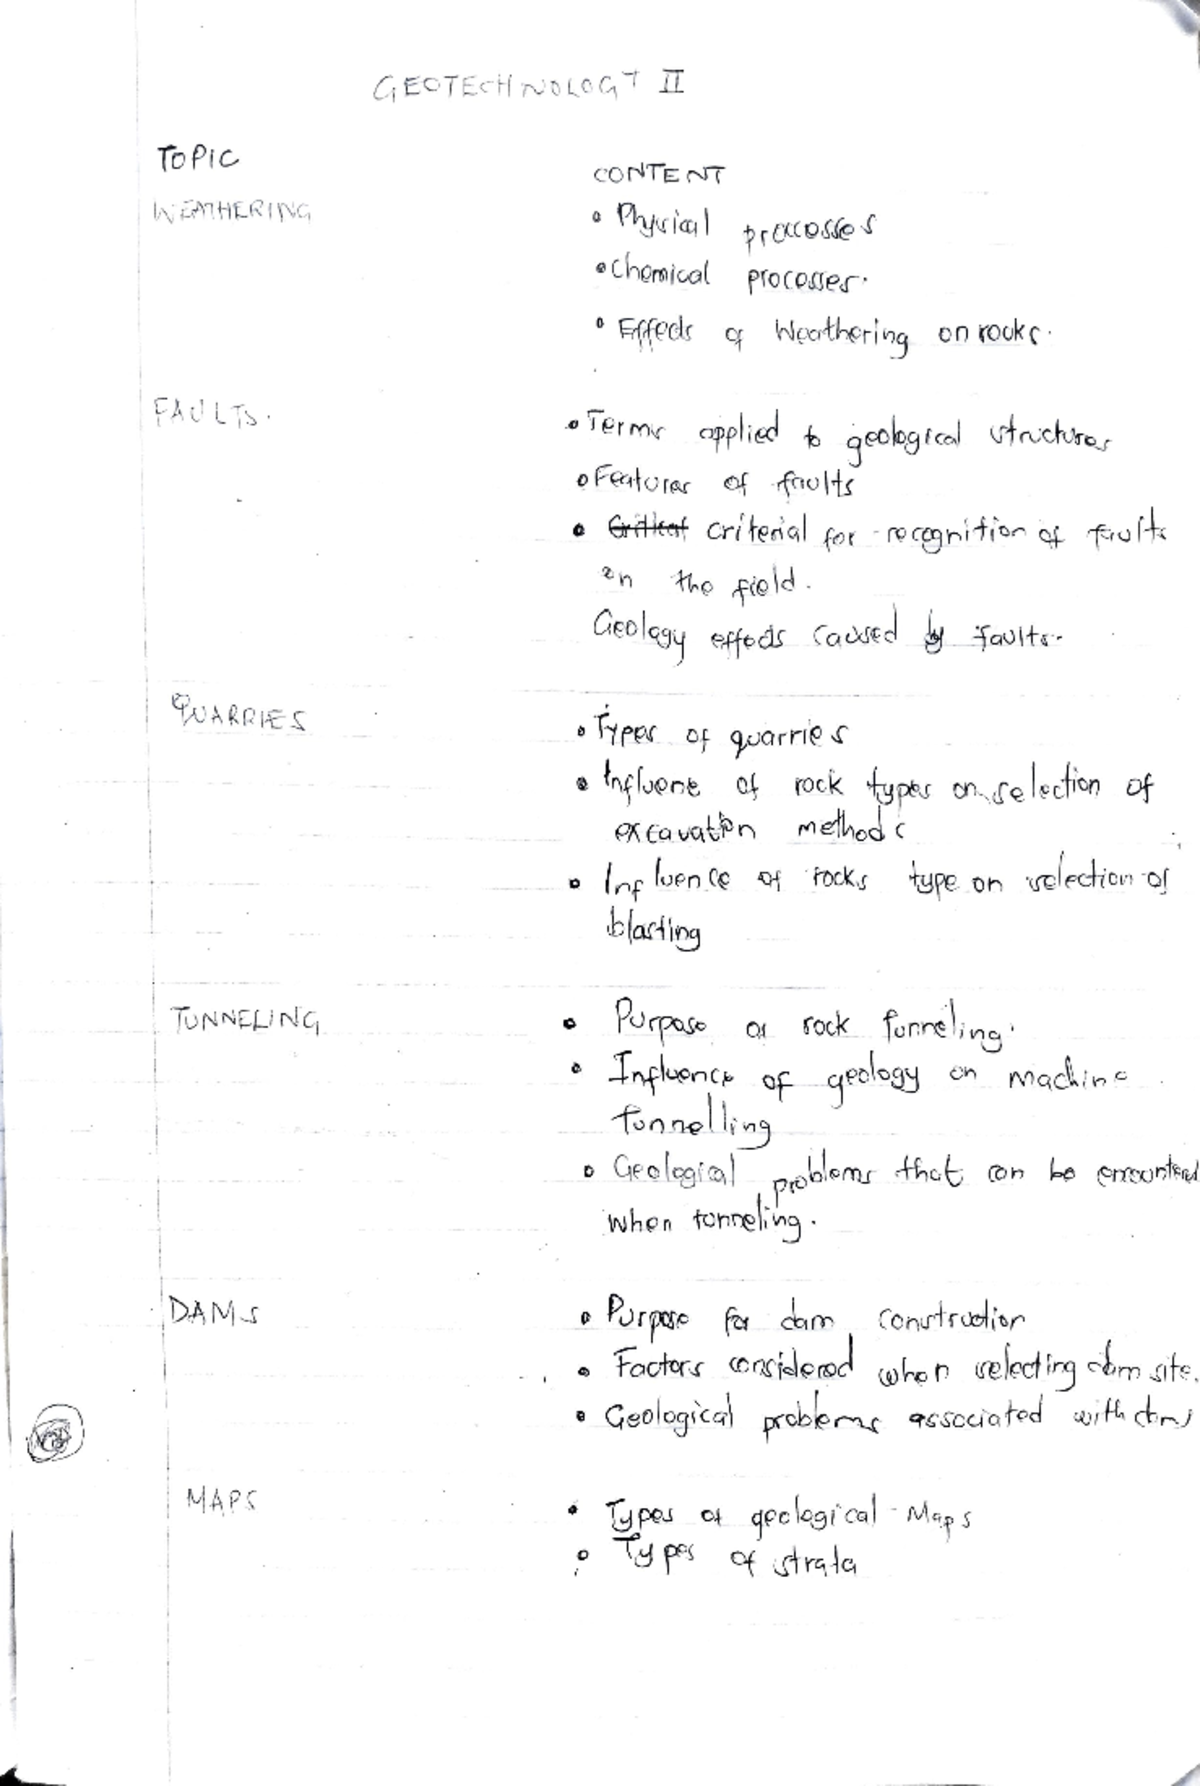 GEOTECHNOLOGY II
TOPIC
CONTENT
WEATHERING
• Physical processes
• Chemical processes.
• Effects of Weathering on rocks.
FAULTS.
• Terms applied to geological structures
• Features of faults
• Critical criterial for recognition of faults
on the field.
Geology effects caused by faults.
QUARRIES
• Types of quarries
• Influence of rock types on selection of
excavation methods
• Influence of rocks type on selection of
blasting
TUNNELING
• Purpose of rock tunneling.
• Influence of geology on machine
tunnelling
• Geological problems that can be encountered
when tunneling.
DAMS
• Purpose for dam construction
• Factors considered when selecting dam site.
• Geological problems associated with dams
MAPS
• Types of geological Maps
• Types of strata